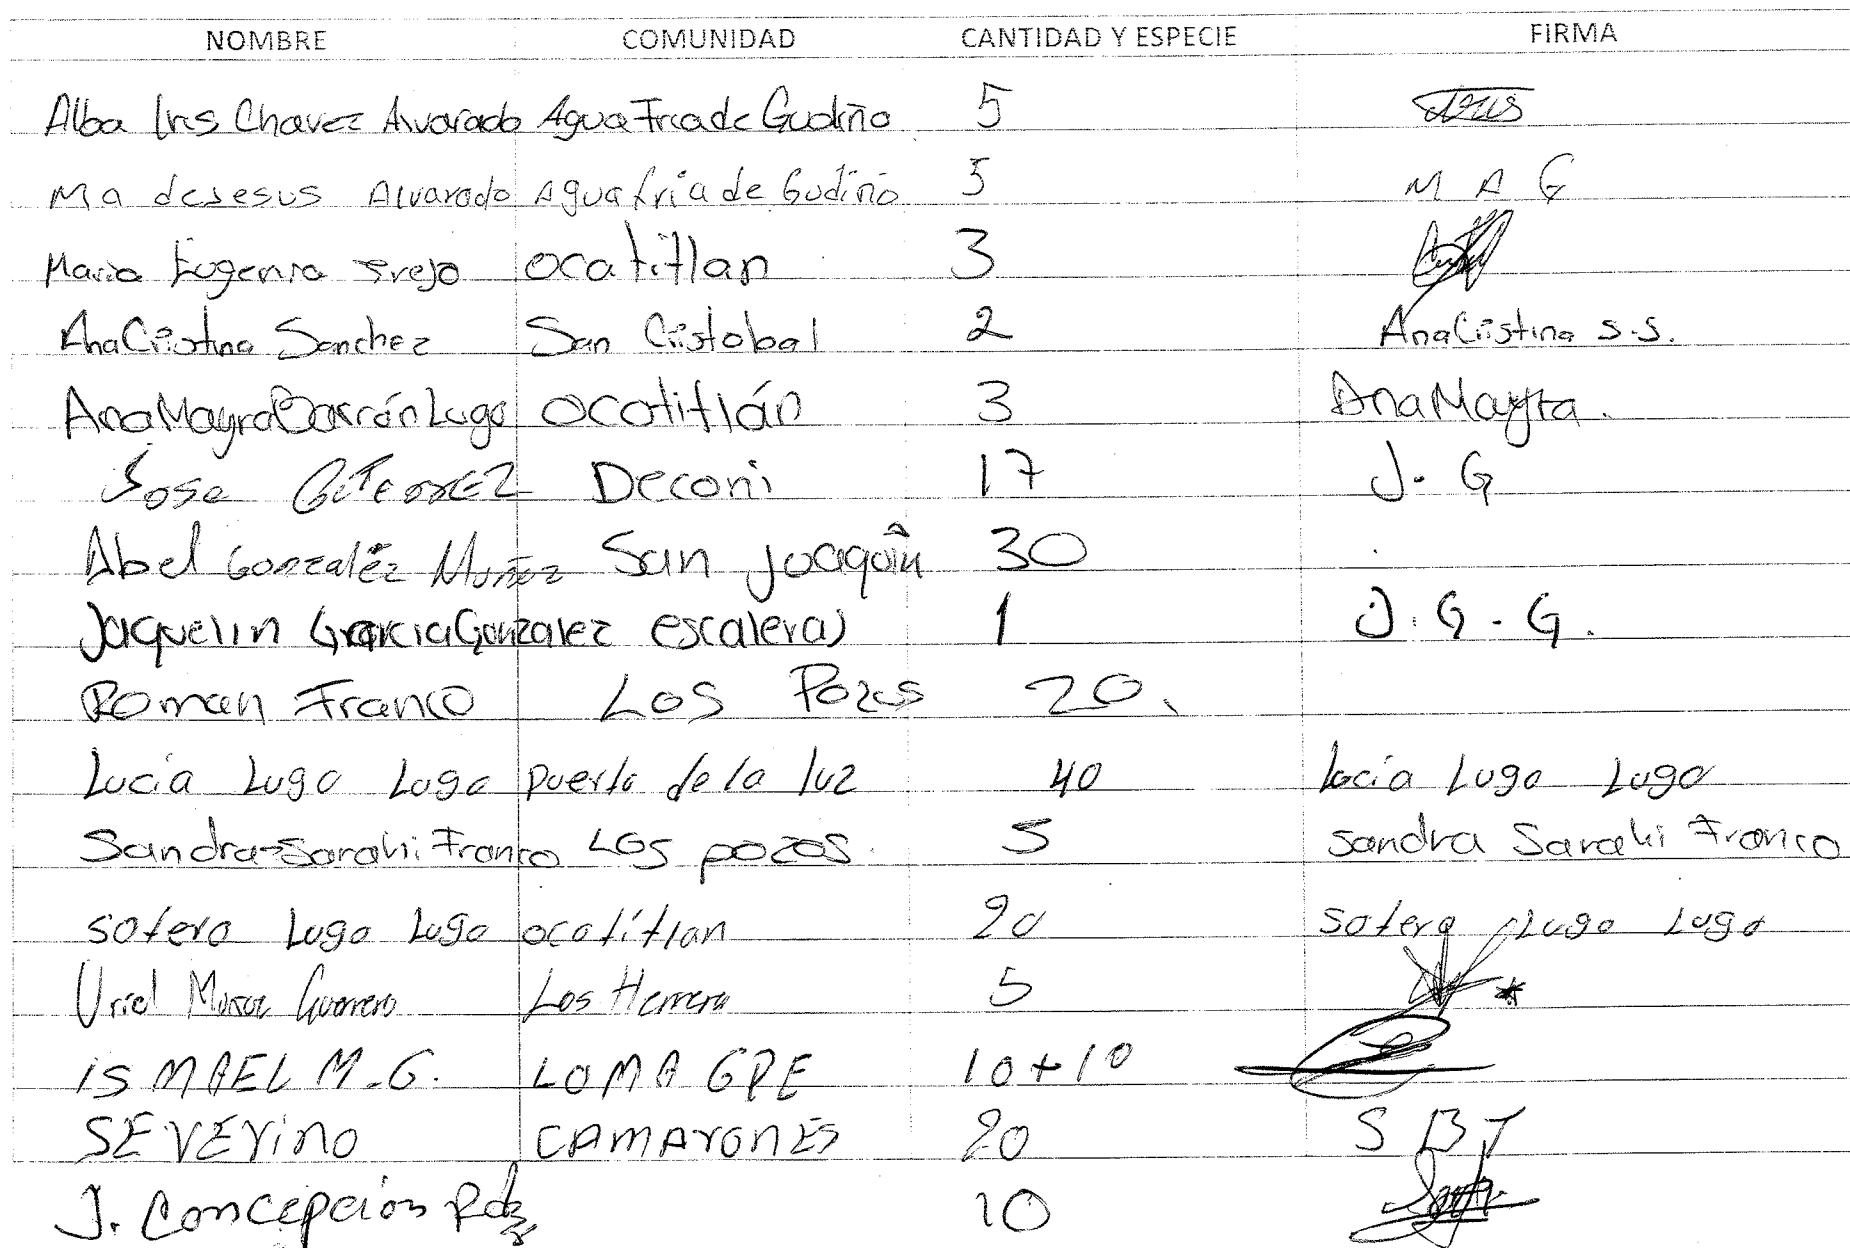 NOMBRE COMUNIDAD CANTIDAD Y ESPECIE FIRMA
Alba Iris Chavez Alvarado Agua Fria de Gudiño 5
Ma de Jesus Alvarado Agua fria de Gudiño 5 M A G
Maria Eugenia Trejo ocatitlan 3
Ana Cristina Sanchez San Cristobal 2 Ana Cristina S.S.
Ana Mayra Barrón Lugo ocotitlán 3 Ana Mayra.
Jose Deconi 17 J. G
Abel Gonzaléz Muñoz San Joaquin 30
Jaquelin Garcia Gonzalez escaleras 1 J. G. G.
Roman Franco Los Pozos 20.
Lucia Lugo Lugo puerto de la luz 40 Lucia Lugo Lugo
Sandra Sarahi Franco Los pozos. 5 Sandra Sarahi Franco
sotero Lugo Lugo ocotitlan 20 sotero Lugo Lugo
Uriel Muñoz Guerrero Los Herrera 5
isMAEL M.G. LOMA GPE 10+10
SEVERino CAMARONES 20 S B J
J. Concepción Rdz 10